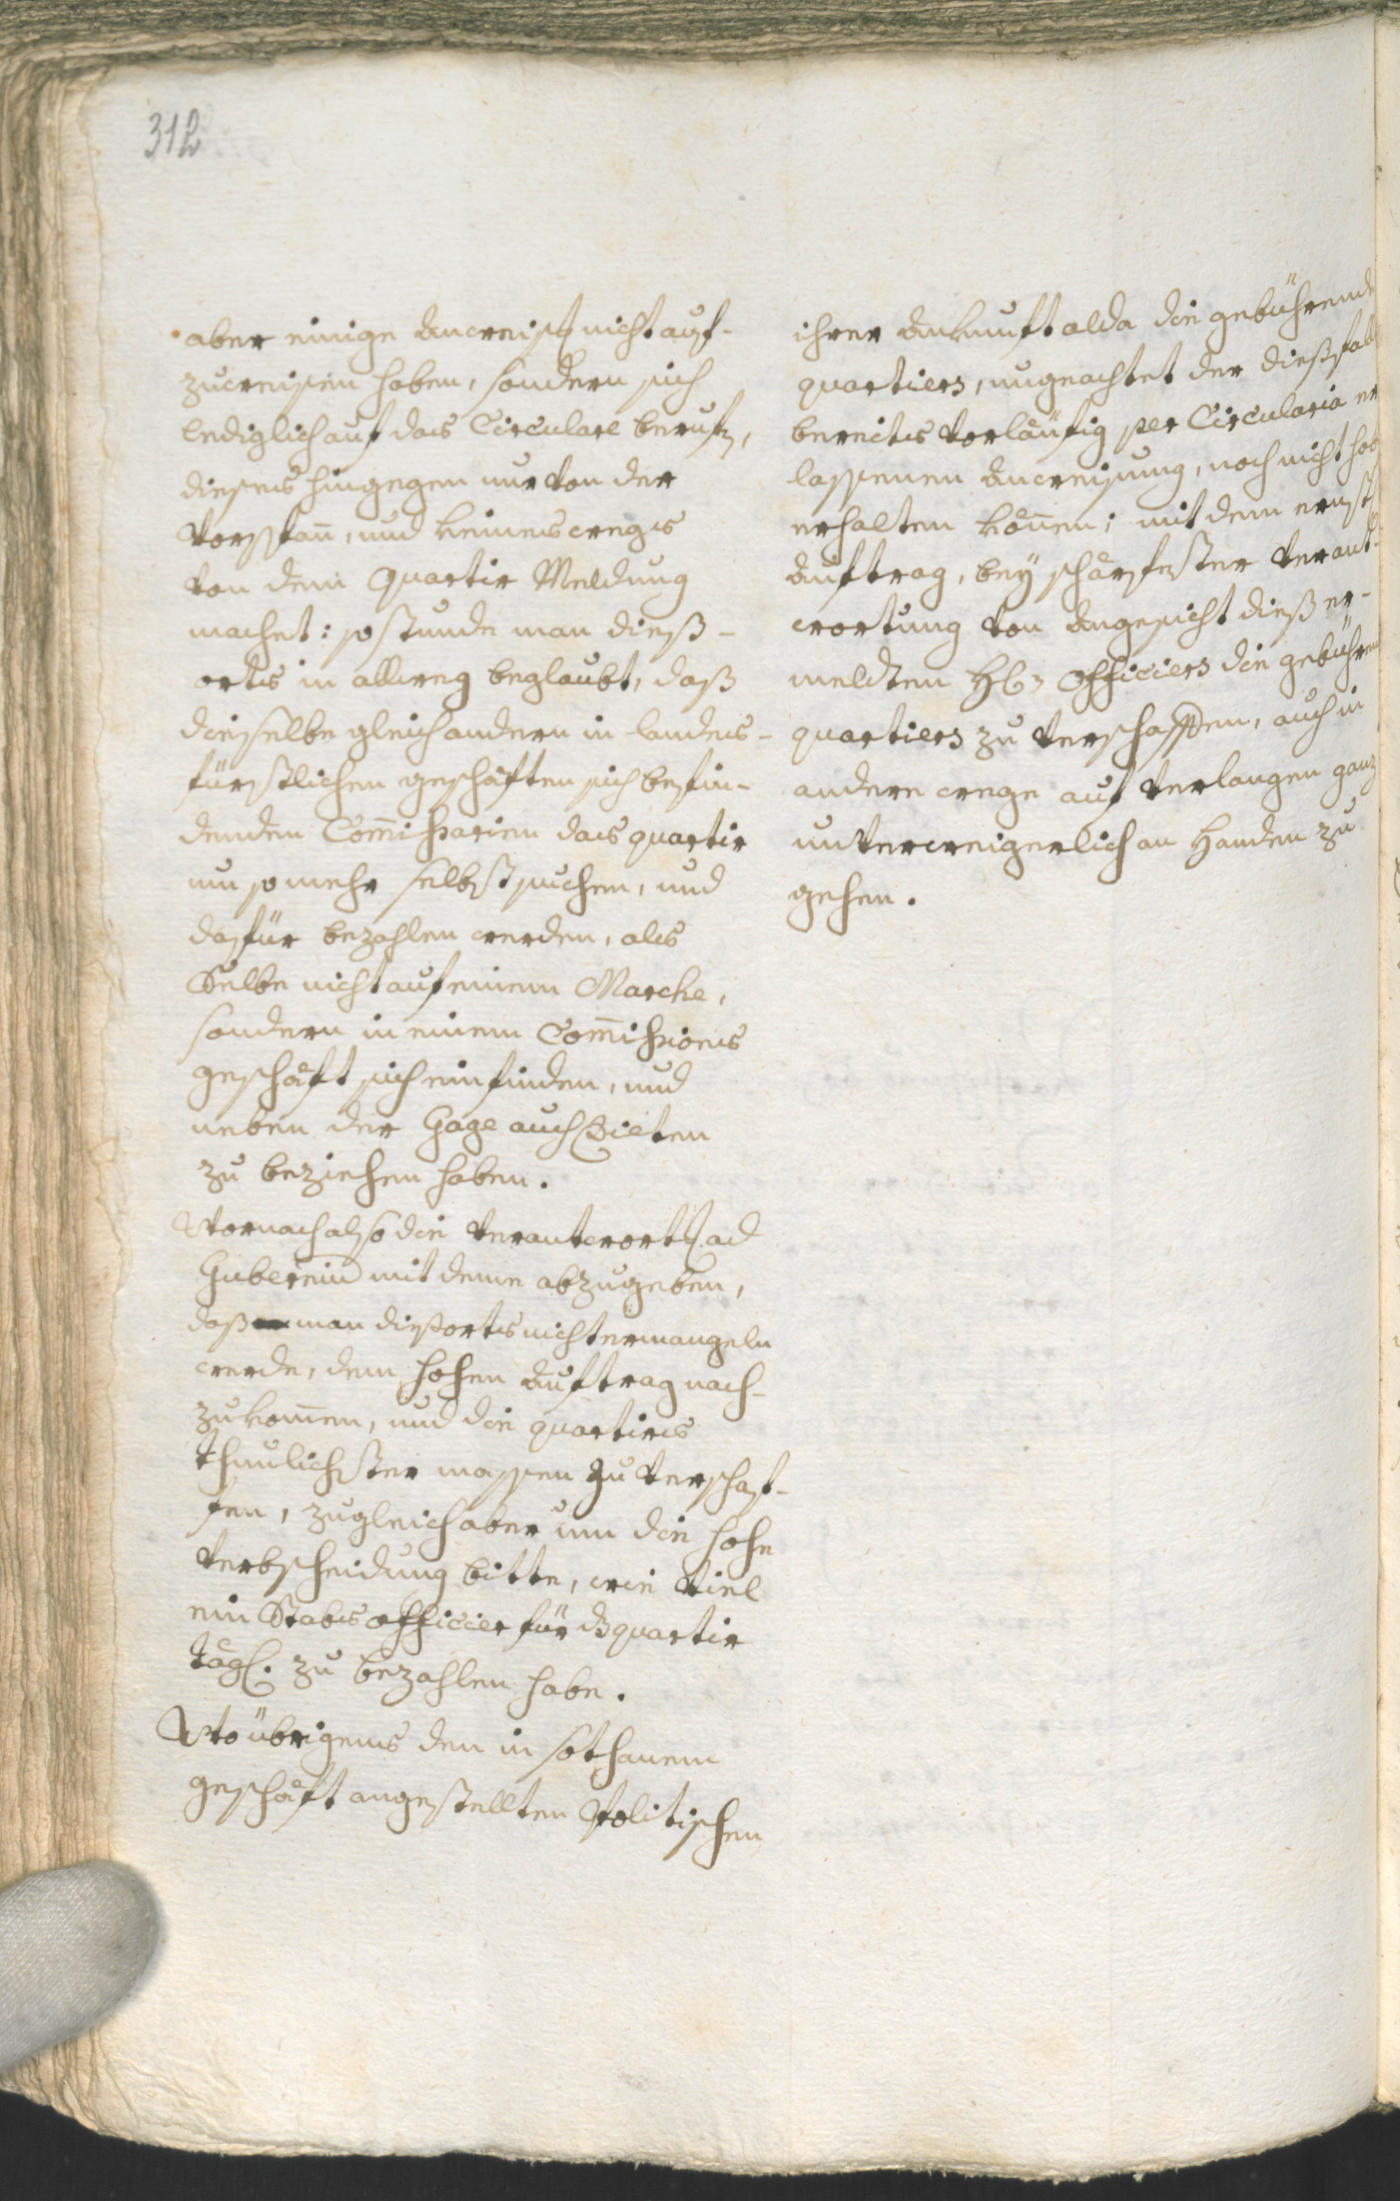 312
aber einige Anweisung nicht auf-
zuweisen haben, sondern sich
lediglich auf das Circulare beruffen,
dieses hingegen nur von der
Vorspann, und keineswegs
von dem Quartir Meldung
machet: so stunde man dieß-
orts in allweg beglaubt, daß
dieselbe gleich andern in landes-
fürstlichen geschäften sich befin-
denden Commissarien das quartir
um so mehr selbst suchen, und
dafür bezahlen werden, als
Selbe nicht auf einem Marche,
sondern in einem Commissions
geschäft sich einfinden, und
neben der Gage auch Dieten
zu beziehen haben.
Wornach also die verantwortg. ad
Gubernium mit deme abzugeben,
daß man diesorts nicht ermangeln
werde, dem hohen Auftrag nach-
zukommen, und die quartirs
thunlichster massen zu verschaf-
fen, zugleich aber um die hohe
verbscheidung bitte, wie viel
ein Stabs officier für das quartir
tägl. zu bezahlen habe.
Wo übrigens den in sothanem
geschäft angestellten Politischen
ihrer Ankunft alda die gebührende
quartiers, ungeachtet der dießfalls
bereits vorläufig per Circularia er
lassenen Anweisung, noch nicht hab
erhalten können; mit dem ernst
Auftrag, bey schärfester verant-
wortung von Angesicht dieß er-
meldten Hl. Officiers die gebühren
quartiers zu verschaffen, auch in
andere wege auf verlangen ganz
unverweigerlich an Handen zu
gehen.